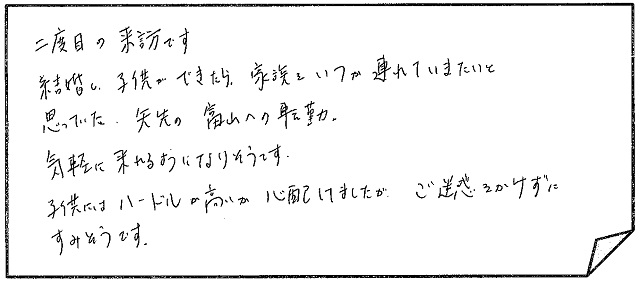 二度目の来訪です
結婚し、子供ができたら、家族をいつか連れていきたいと
思っていた、矢先の富山への転勤。
気軽に来れるようになりそうです。
子供にはハードルが高いか心配しましたが、ご迷惑をかけずに
すみそうです。